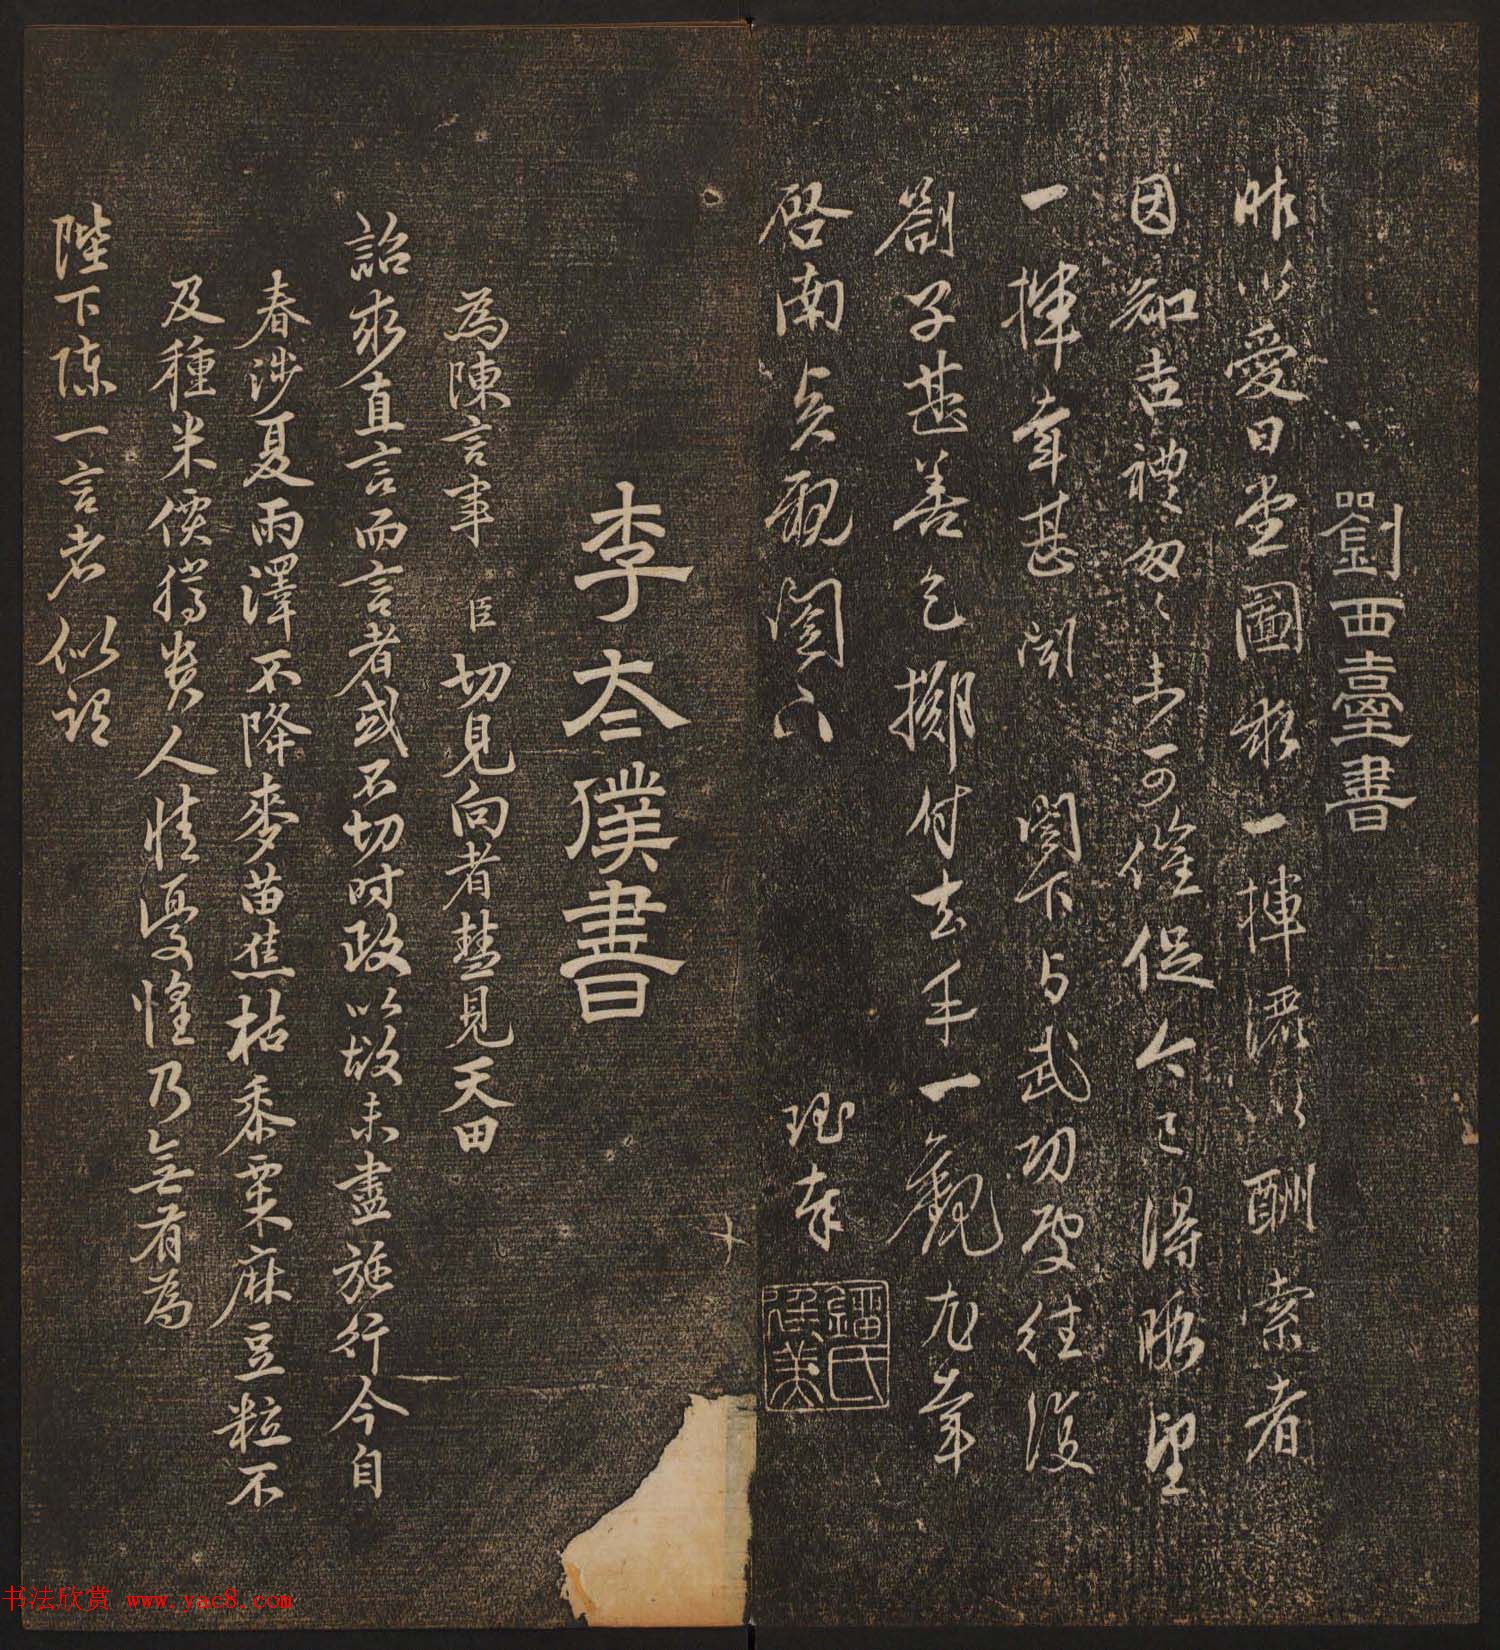 劉西臺書
昨以愛日堂圖求一揮灑以酬索者
因知吉禮匆々未可催促今已得暇望
一揮幸甚閣下与武功殿往復
劄子甚善乞擲付去手一觀尤幸
啓南 觀閣下 珏奉
李太僕書
為陳言事臣切見向者彗見天田
詔求直言而言者或不切时政以故未盡施行今自
春涉夏雨澤不降麥苗焦枯黍粟麻豆粒不
及種米價騰貴人情憂惶乃無有為
陛下陳一言者似誤
書法欣赏 www.yac8.com